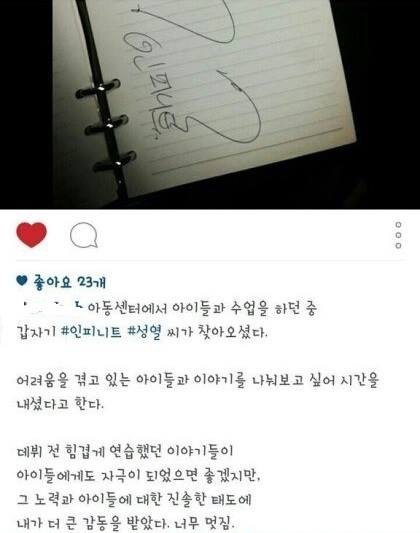 인피니트
좋아요 23개
아동센터에서 아이들과 수업을 하던 중
갑자기 #인피니트 #성열 씨가 찾아오셨다.
어려움을 겪고 있는 아이들과 이야기를 나눠보고 싶어 시간을
내셨다고 한다.
데뷔 전 힘겹게 연습했던 이야기들이
아이들에게도 자극이 되었으면 좋겠지만,
그 노력과 아이들에 대한 진솔한 태도에
내가 더 큰 감동을 받았다. 너무 멋짐.